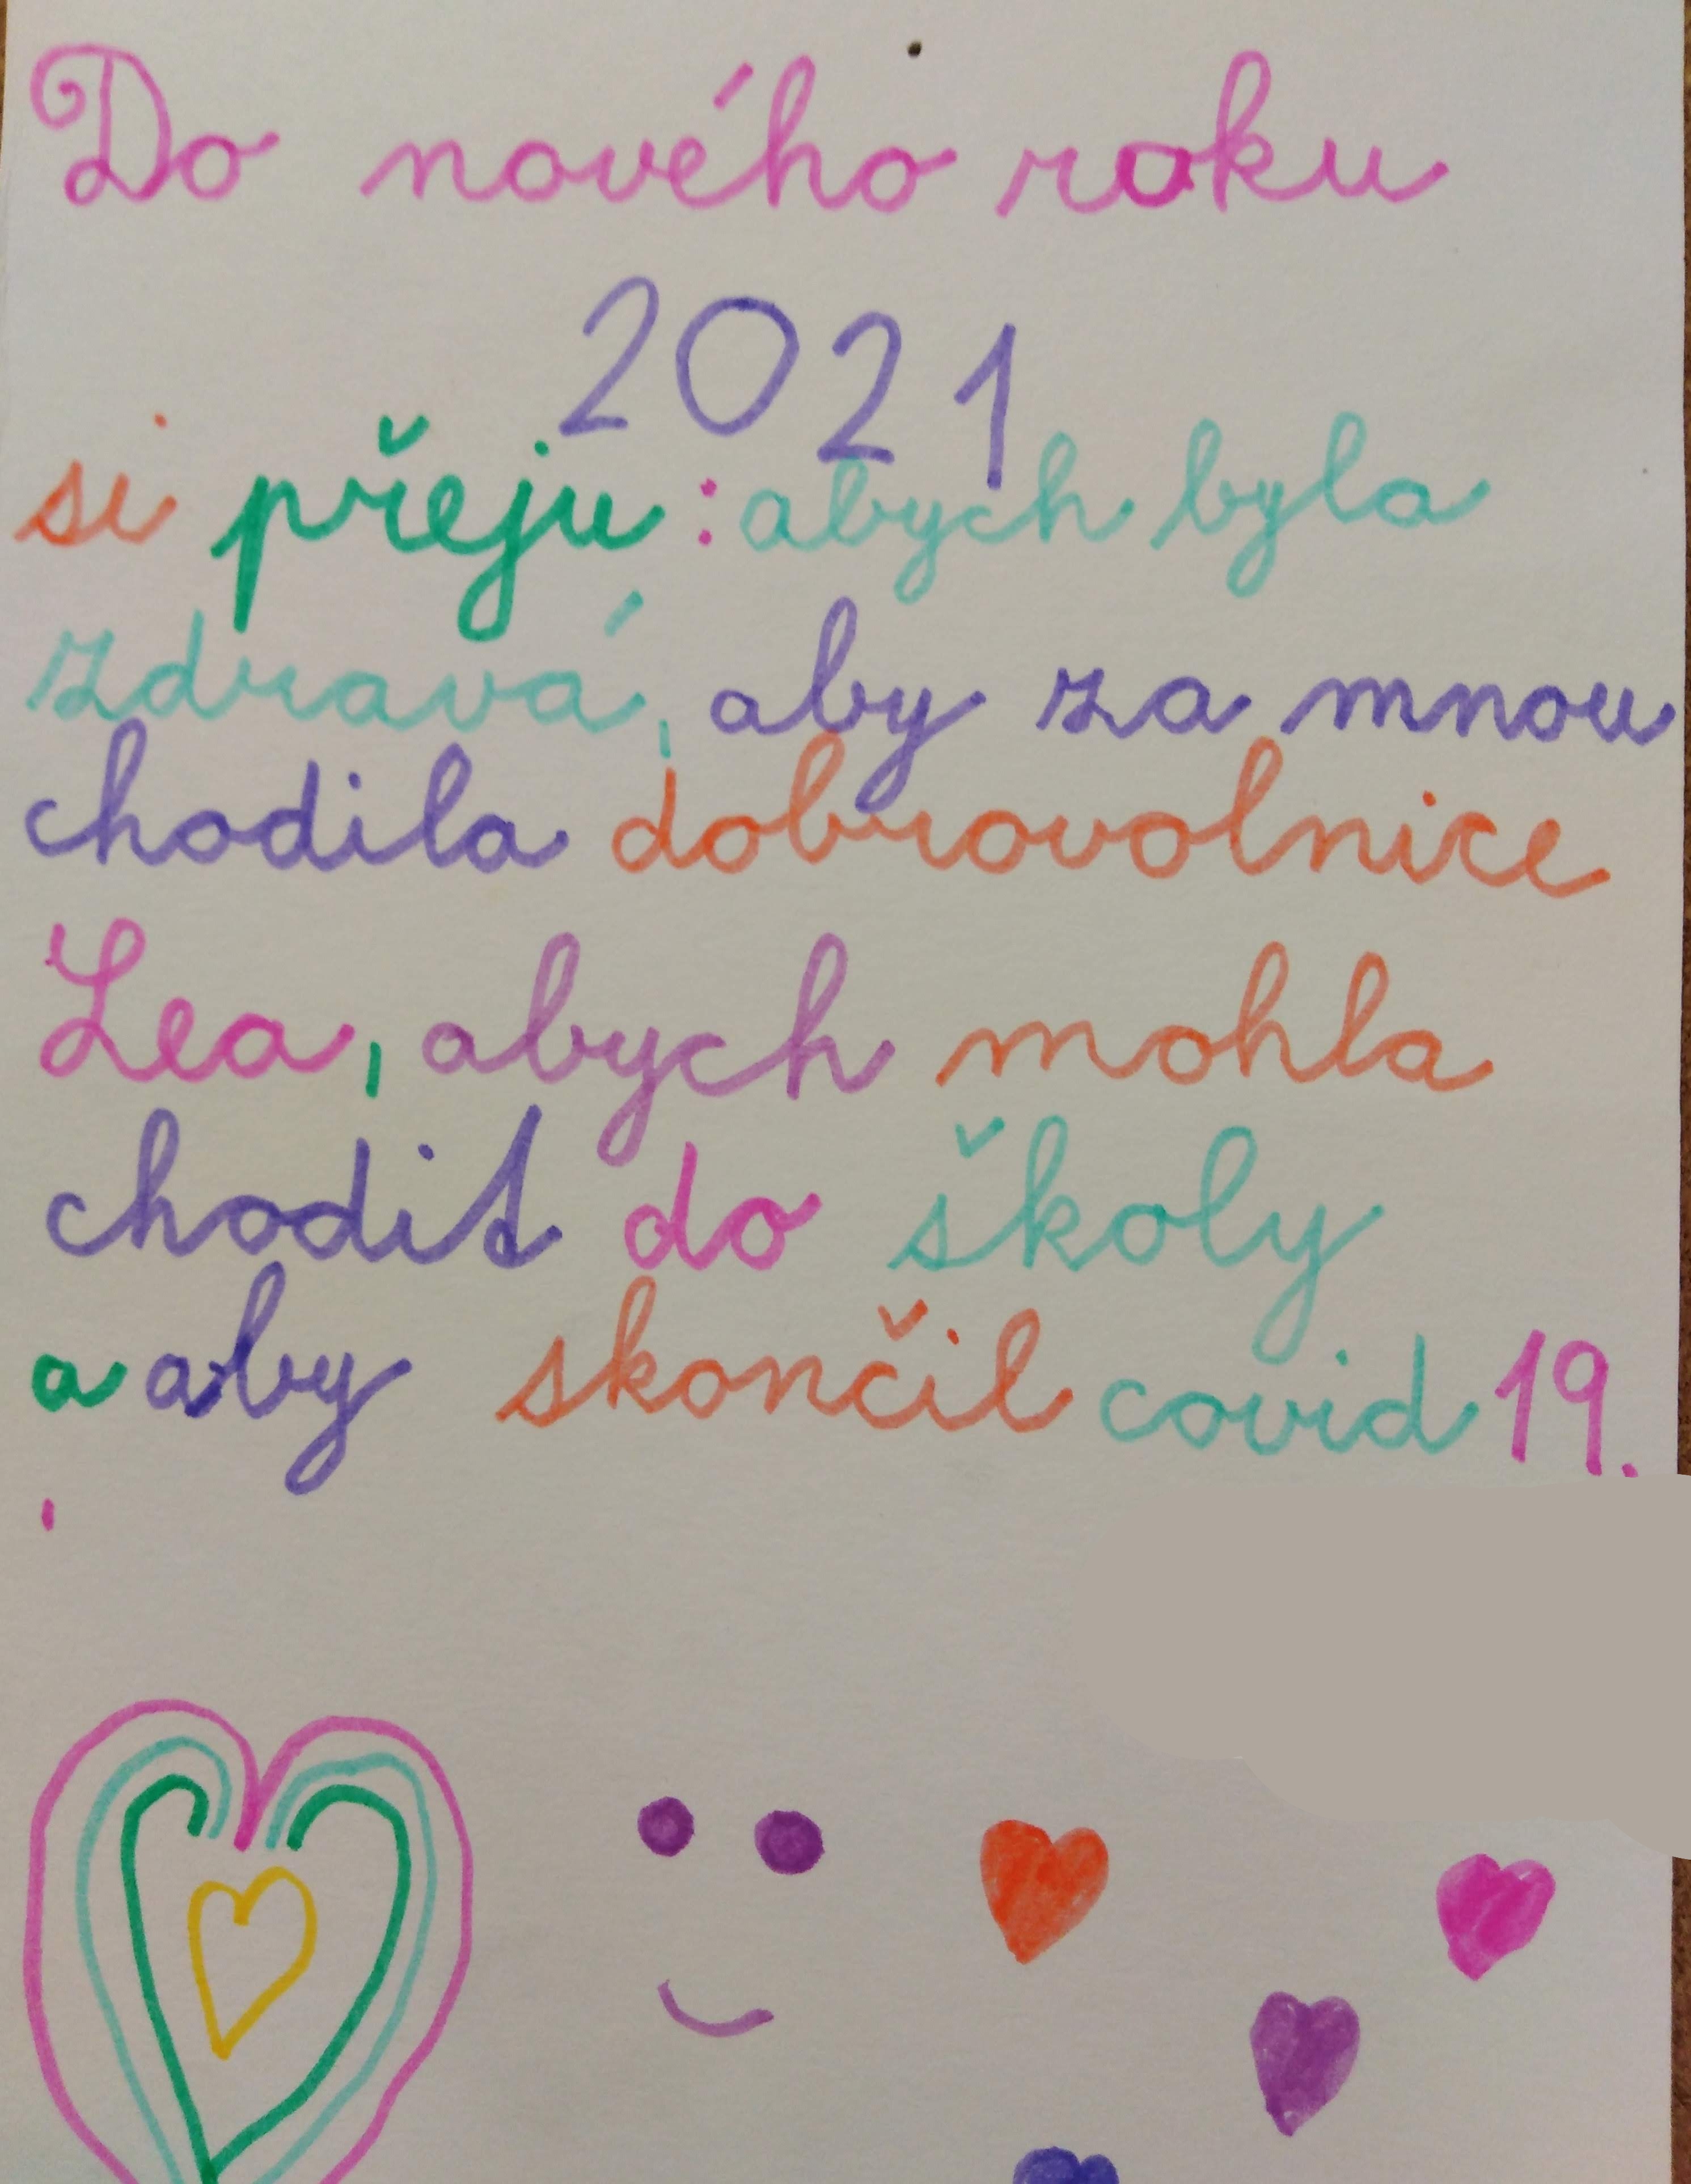 Do nového roku
2021
si přeju: abych byla
zdravá, aby za mnou
chodila dobrovolnice
Lea, abych mohla
chodit do školy
a aby skončil covid 19.